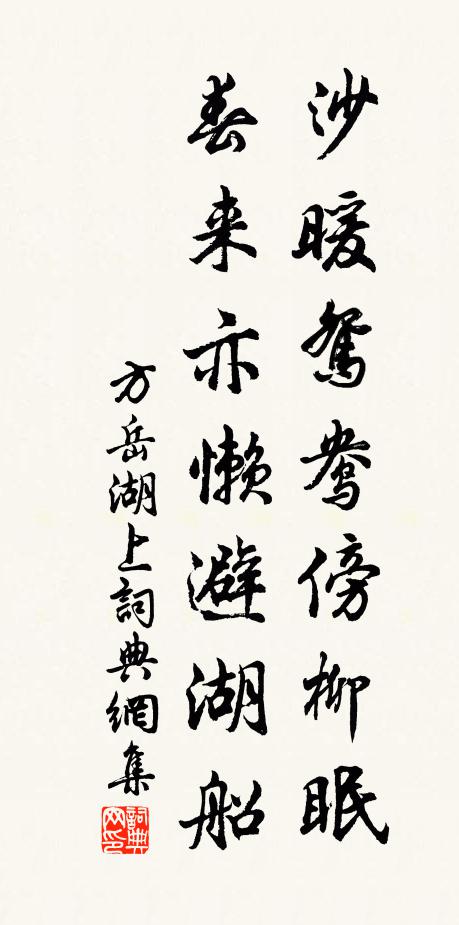 沙暖鴛鴦傍柳眠
春来亦懶避湖船
方岳湖上詞典網集
詞典网印